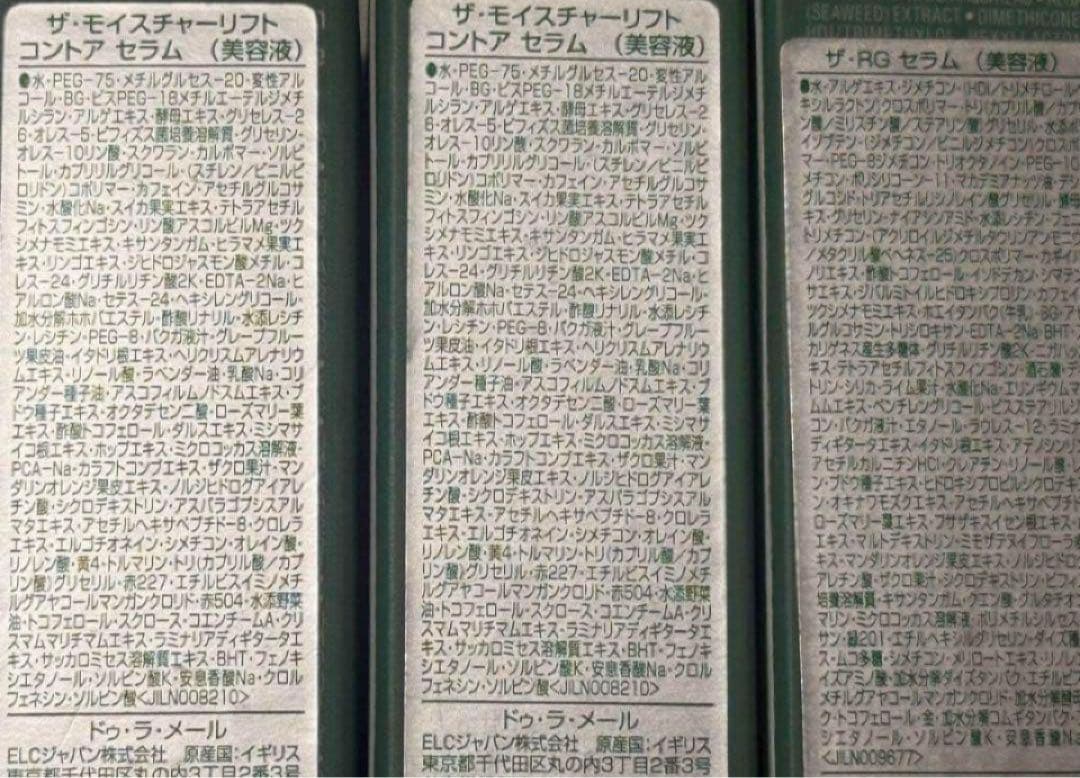 ザ・モイスチャーリフト
コントア セラム （美容液）
●水・PEG-75・メチルグルセス-20・変性アル
コール・BG・ビスPEG-18メチルエーテルジメチ
ルシラン・アルゲエキス・酵母エキス・グリセレス-2
6・オレス-5・ビフィズス菌培養溶解質・グリセリン・
オレス-10リン酸・スクワラン・カルボマー・ソルビ
トール・カプリリルグリコール・(スチレン/ビニルピ
ロリドン)コポリマー・カフェイン・アセチルグルコサ
ミン・水酸化Na・スイカ果実エキス・テトラアセチル
フィトスフィンゴシン・リン酸アスコルビルMg・ツク
シメナモミエキス・キサンタンガム・ヒラマメ果実エ
キス・リンゴエキス・ジヒドロジャスモン酸メチル・コ
レス-24・グリチルリチン酸2K・EDTA-2Na・ヒ
アルロン酸Na・セテス-24・ヘキシレングリコール・
加水分解ホホバエステル・酢酸リナリル・水添レシチ
ン・レシチン・PEG-8・バクガ液汁・グレープフルー
ツ果皮油・イタドリ根エキス・ヘリクリスムアレナリウ
ムエキス・リノール酸・ラベンダー油・乳酸Na・コリ
アンダー種子油・アスコフィルムノドスムエキス・ブ
ドウ種子エキス・オクタデセン二酸・ローズマリー葉
エキス・酢酸トコフェロール・ダルスエキス・ミシマサ
イコ根エキス・ホップエキス・ミクロコッカス溶解液・
PCA-Na・カラフトコンブエキス・ザクロ果汁・マン
ダリンオレンジ果皮エキス・ノルジヒドログアイアレ
チン酸・シクロデキストリン・アスパラゴプシスアル
マタエキス・アセチルヘキサペプチド-8・クロレラ
エキス・エルゴチオネイン・シメチコン・オレイン酸・
リノレン酸・黄4・トルマリン・トリ(カプリル酸/カプ
リン酸)グリセリル・赤227・エチルビスイミノメチ
ルグアヤコールマンガンクロリド・赤504・水添野菜
油・トコフェロール・スクロース・コエンチームA・クリ
スマムマリチマムエキス・ラミナリアディギタータエ
キス・サッカロミセス溶解質エキス・BHT・フェノキ
シエタノール・ソルビン酸K・安息香酸Na・クロル
フェネシン・ソルビン酸<JILN008210>
ドゥ・ラ・メール
ELCジャパン株式会社 原産国:イギリス
東京都千代田区丸の内3丁目2番3号
ザ・モイスチャーリフト
コントア セラム （美容液）
●水・PEG-75・メチルグルセス-20・変性アル
コール・BG・ビスPEG-18メチルエーテルジメチ
ルシラン・アルゲエキス・酵母エキス・グリセレス-2
6・オレス-5・ビフィズス菌培養溶解質・グリセリン・
オレス-10リン酸・スクワラン・カルボマー・ソルビ
トール・カプリリルグリコール・(スチレン/ビニルピ
ロリドン)コポリマー・カフェイン・アセチルグルコサ
ミン・水酸化Na・スイカ果実エキス・テトラアセチル
フィトスフィンゴシン・リン酸アスコルビルMg・ツク
シメナモミエキス・キサンタンガム・ヒラマメ果実エ
キス・リンゴエキス・ジヒドロジャスモン酸メチル・コ
レス-24・グリチルリチン酸2K・EDTA-2Na・ヒ
アルロン酸Na・セテス-24・ヘキシレングリコール・
加水分解ホホバエステル・酢酸リナリル・水添レシチ
ン・レシチン・PEG-8・バクガ液汁・グレープフルー
ツ果皮油・イタドリ根エキス・ヘリクリスムアレナリウ
ムエキス・リノール酸・ラベンダー油・乳酸Na・コリ
アンダー種子油・アスコフィルムノドスムエキス・ブ
ドウ種子エキス・オクタデセン二酸・ローズマリー葉
エキス・酢酸トコフェロール・ダルスエキス・ミシマサ
イコ根エキス・ホップエキス・ミクロコッカス溶解液・
PCA-Na・カラフトコンブエキス・ザクロ果汁・マン
ダリンオレンジ果皮エキス・ノルジヒドログアイアレ
チン酸・シクロデキストリン・アスパラゴプシスアル
マタエキス・アセチルヘキサペプチド-8・クロレラ
エキス・エルゴチオネイン・シメチコン・オレイン酸・
リノレン酸・黄4・トルマリン・トリ(カプリル酸/カプ
リン酸)グリセリル・赤227・エチルビスイミノメチ
ルグアヤコールマンガンクロリド・赤504・水添野菜
油・トコフェロール・スクロース・コエンチームA・クリ
スマムマリチマムエキス・ラミナリアディギタータエ
キス・サッカロミセス溶解質エキス・BHT・フェノキ
シエタノール・ソルビン酸K・安息香酸Na・クロル
フェネシン・ソルビン酸<JILN008210>
ドゥ・ラ・メール
ELCジャパン株式会社 原産国:イギリス
東京都千代田区丸の内3丁目2番3号
(SEAWEED) EXTRACT • DIMETHICONE
ザ・RG セラム （美容液）
●水・アルゲエキス・ジメチコン・(HDI/トリメチロール
キシルラクトン)クロスポリマー・トリ(カプリル酸/カプ
ン酸/ミリスチン酸/ステアリン酸)グリセリル・水添
イソブテン・(ジメチコン/ビニルジメチコン)クロスポ
マー・PEG-8ジメチコン・トリオクタノイン・PEG-10
メチコン・ポリシリコーン-11・マカデミアナッツ油・デ
グルコシド・トリアセチルリシノレイン酸グリセリル・酵母
キス・グリセリン・ナイアシンアミド・水添レシチン・フェニ
トリメチコン・(アクリロイルジメチルタウリンアンモニ
/メタクリル酸ベヘネス-25)クロスポリマー・カギイバ
ノリエキス・酢酸トコフェロール・インドチカン/ソマテン
サエキス・ジパルミトイルヒドロキシプロリン・カフェイ
ツクシメナモミエキス・ホエイタンパク(牛乳)・BG・ア
ルグルコサミン・トレシロキサン・EDTA-2Na・BHT・
カリゲネス産生多糖体・グリチルリチン酸2K・ニガハッ
キス・テトラアセチルフィトスフィンゴシン・酒石酸・デ
トリン・シリカ・ライム果汁・水酸化Na・エリンギウムマ
ムムエキス・ペンチレングリコール・ビスステアリル
コン・バクガ液汁・エタノール・ラウレス-12・ラミナ
ディギタータエキス・イタドリ根エキス・アデノシン
アセチルカルニチンHCl・クレアチン・リノール酸・
ン・ブドウ種子エキス・ヒドロキシプロピルシクロデキ
ン・オキナワモズクエキス・アセチルヘキサペプチド
ローズマリー葉エキス・フサザキスイセン根エキス
エキス・マルトデキストリン・ミモザテヌイフローラ
キス・マンダリンオレンジ果皮エキス・ノルジヒドロ
アレチン酸・ザクロ果汁・シクロデキストリン・ビフィ
培養溶解質・キサンタンガム・クエン酸・グルタチオ
リン・ミクロコッカス溶解液・ポリメチルシルセス
サン・緑201・エチルヘキシルグリセリン・ダイズ種
ス・ムコ多糖・シメチコン・メリロートエキス・リノレ
イズアミノ酸・加水分解ダイズタンパク・エチルビ
メチルグアヤコールマンガンクロリド・加水分解酵母
ク・トコフェロール・金・加水分解コムギタンパク・フ
シエタノール・ソルビン酸K・安息香酸Na
<JILN009677>